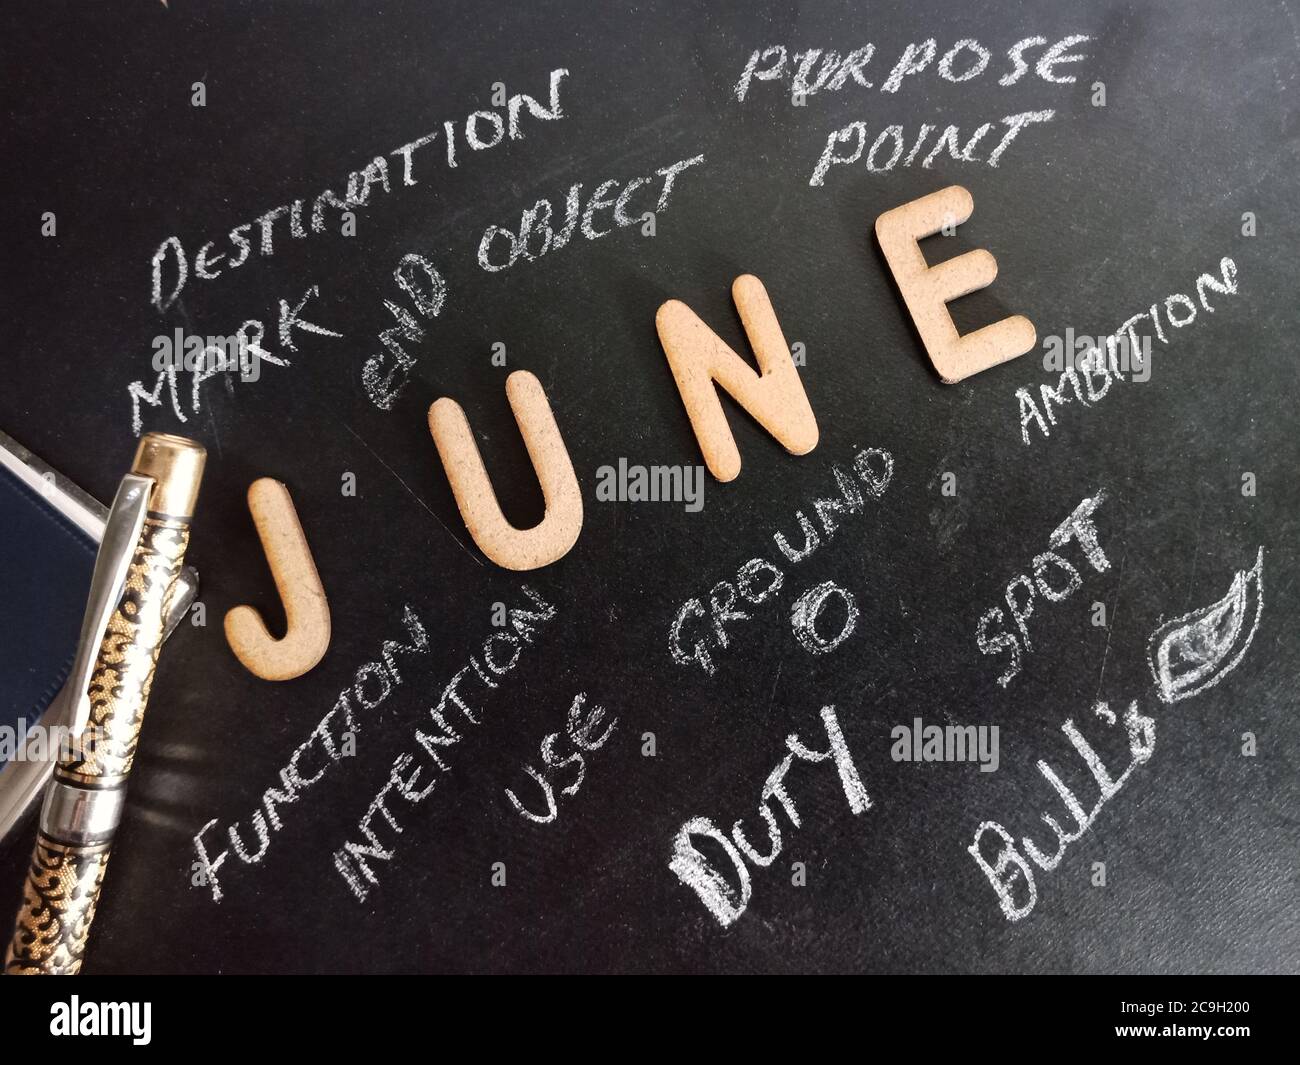 PURPOSE
DESTINATION
POINT
OBJECT
END
MARK
JUNE
AMBITION
GROUND
SPOT
FUNCTION
INTENTION
USE
DUTY
Bull's
alamy
Image ID: 2C9H200
www.alamy.com